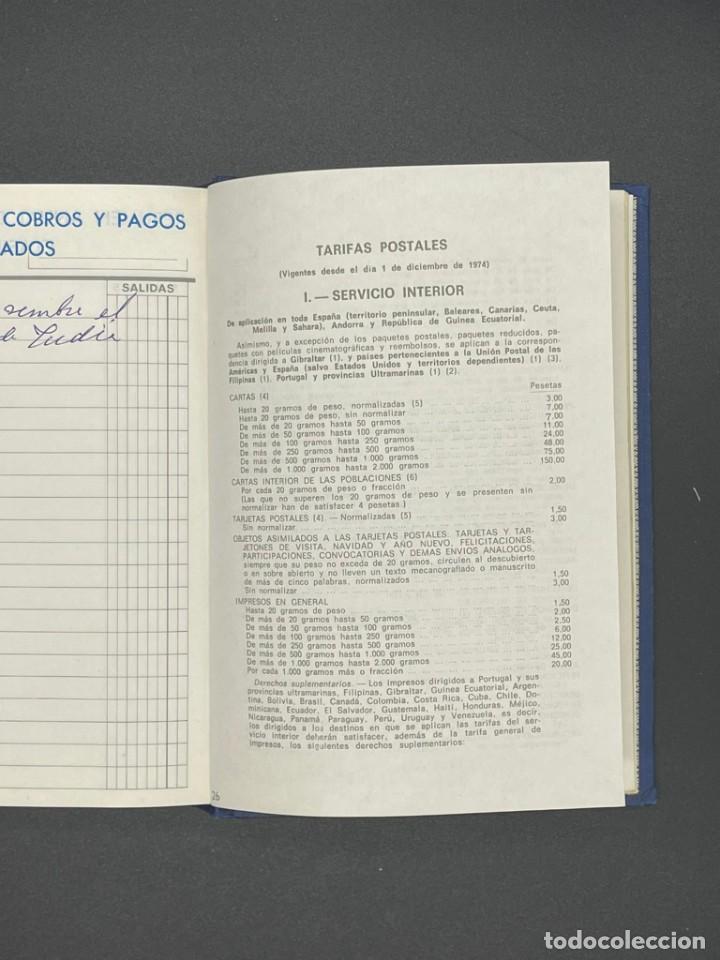 COBROS Y PAGOS
ADOS
SALIDAS
sembre el
de
TARIFAS POSTALES
(Vigentes desde el día 1 de diciembre de 1974)
I. — SERVICIO INTERIOR
De aplicación en toda España (territorio peninsular, Baleares, Canarias, Ceuta,
Melilla y Sahara), Andorra y República de Guinea Ecuatorial.
Asimismo, y a excepción de los paquetes postales, paquetes reducidos, pa-
quetes con películas cinematográficas y reembolsos, se aplican a la correspon-
dencia dirigida a Gibraltar (1), y países pertenecientes a la Unión Postal de las
Américas y España (salvo Estados Unidos y territorios dependientes) (1) (3).
Filipinas (1). Portugal y provincias Ultramarinas (1) (2).
Pesetas
CARTAS (4)
Hasta 20 gramos de peso, normalizadas (5) 3,00
Hasta 20 gramos de peso, sin normalizar 7,00
De más de 20 gramos hasta 50 gramos 7,00
De más de 50 gramos hasta 100 gramos 11,00
De más de 100 gramos hasta 250 gramos 24,00
De más de 250 gramos hasta 500 gramos 48,00
De más de 500 gramos hasta 1.000 gramos 75,00
De más de 1.000 gramos hasta 2.000 gramos 150,00
CARTAS INTERIOR DE LAS POBLACIONES (6)
Por cada 20 gramos de peso o fracción 2,00
(Las que no superen los 20 gramos de peso y se presenten sin
normalizar han de satisfacer 4 pesetas.)
TARJETAS POSTALES (4) — Normalizadas (5) 1,50
Sin normalizar 3,00
OBJETOS ASIMILADOS A LAS TARJETAS POSTALES: TARJETAS Y TAR-
JETONES DE VISITA, NAVIDAD Y AÑO NUEVO, FELICITACIONES,
PARTICIPACIONES, CONVOCATORIAS Y DEMAS ENVIOS ANALOGOS,
siempre que su peso no exceda de 20 gramos, circulen al descubierto
o en sobre abierto y no lleven un texto mecanografiado o manuscrito
de más de cinco palabras, normalizados 1,50
Sin normalizar 3,00
IMPRESOS EN GENERAL
Hasta 20 gramos de peso 1,50
De más de 20 gramos hasta 50 gramos 2,00
De más de 50 gramos hasta 100 gramos 2,50
De más de 100 gramos hasta 250 gramos 6,00
De más de 250 gramos hasta 500 gramos 12,00
De más de 500 gramos hasta 1.000 gramos 25,00
De más de 1.000 gramos hasta 2.000 gramos 45,00
Por cada 1.000 gramos más o fracción 20,00
Derechos suplementarios. — Los impresos dirigidos a Portugal y sus
provincias ultramarinas, Filipinas, Gibraltar, Guinea Ecuatorial, Argen-
tina, Bolivia, Brasil, Canadá, Colombia, Costa Rica, Cuba, Chile, Do-
minicana, Ecuador, El Salvador, Guatemala, Haití, Honduras, Méjico,
Nicaragua, Panamá, Paraguay, Perú, Uruguay y Venezuela, es decir,
los dirigidos a los destinos en que se aplican las tarifas del ser-
vicio interior deberán satisfacer, además de la tarifa general de
impresos, los siguientes derechos suplementarios:
26
todocoleccion